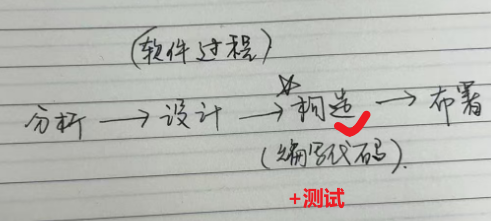 (软件过程)
分析 → 设计 → 构造 → 布署
(编写代码).
+测试